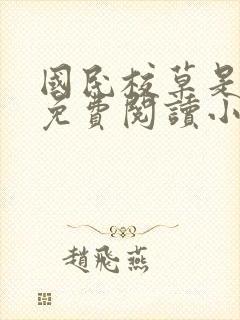 國民校草是
免費閱讀小
趙飛燕